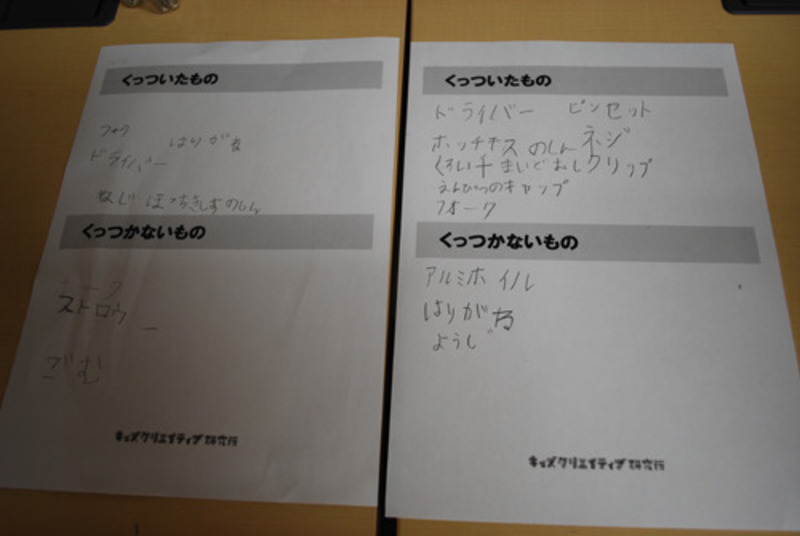 くっついたもの
フォク
はりがね
ドライバー
ねじ ほっちきしすのしん
くっつかないもの
ストロウ
ごむ
キッズクリエイティブ研究所
くっついたもの
ドライバー ピンセット
ホッチキス のしん ネジ
くろい千まいどおしクリップ
えんぴつのキャップ
フオーク
くっつかないもの
アルミホイル
はりがね
ようじ
キッズクリエイティブ研究所